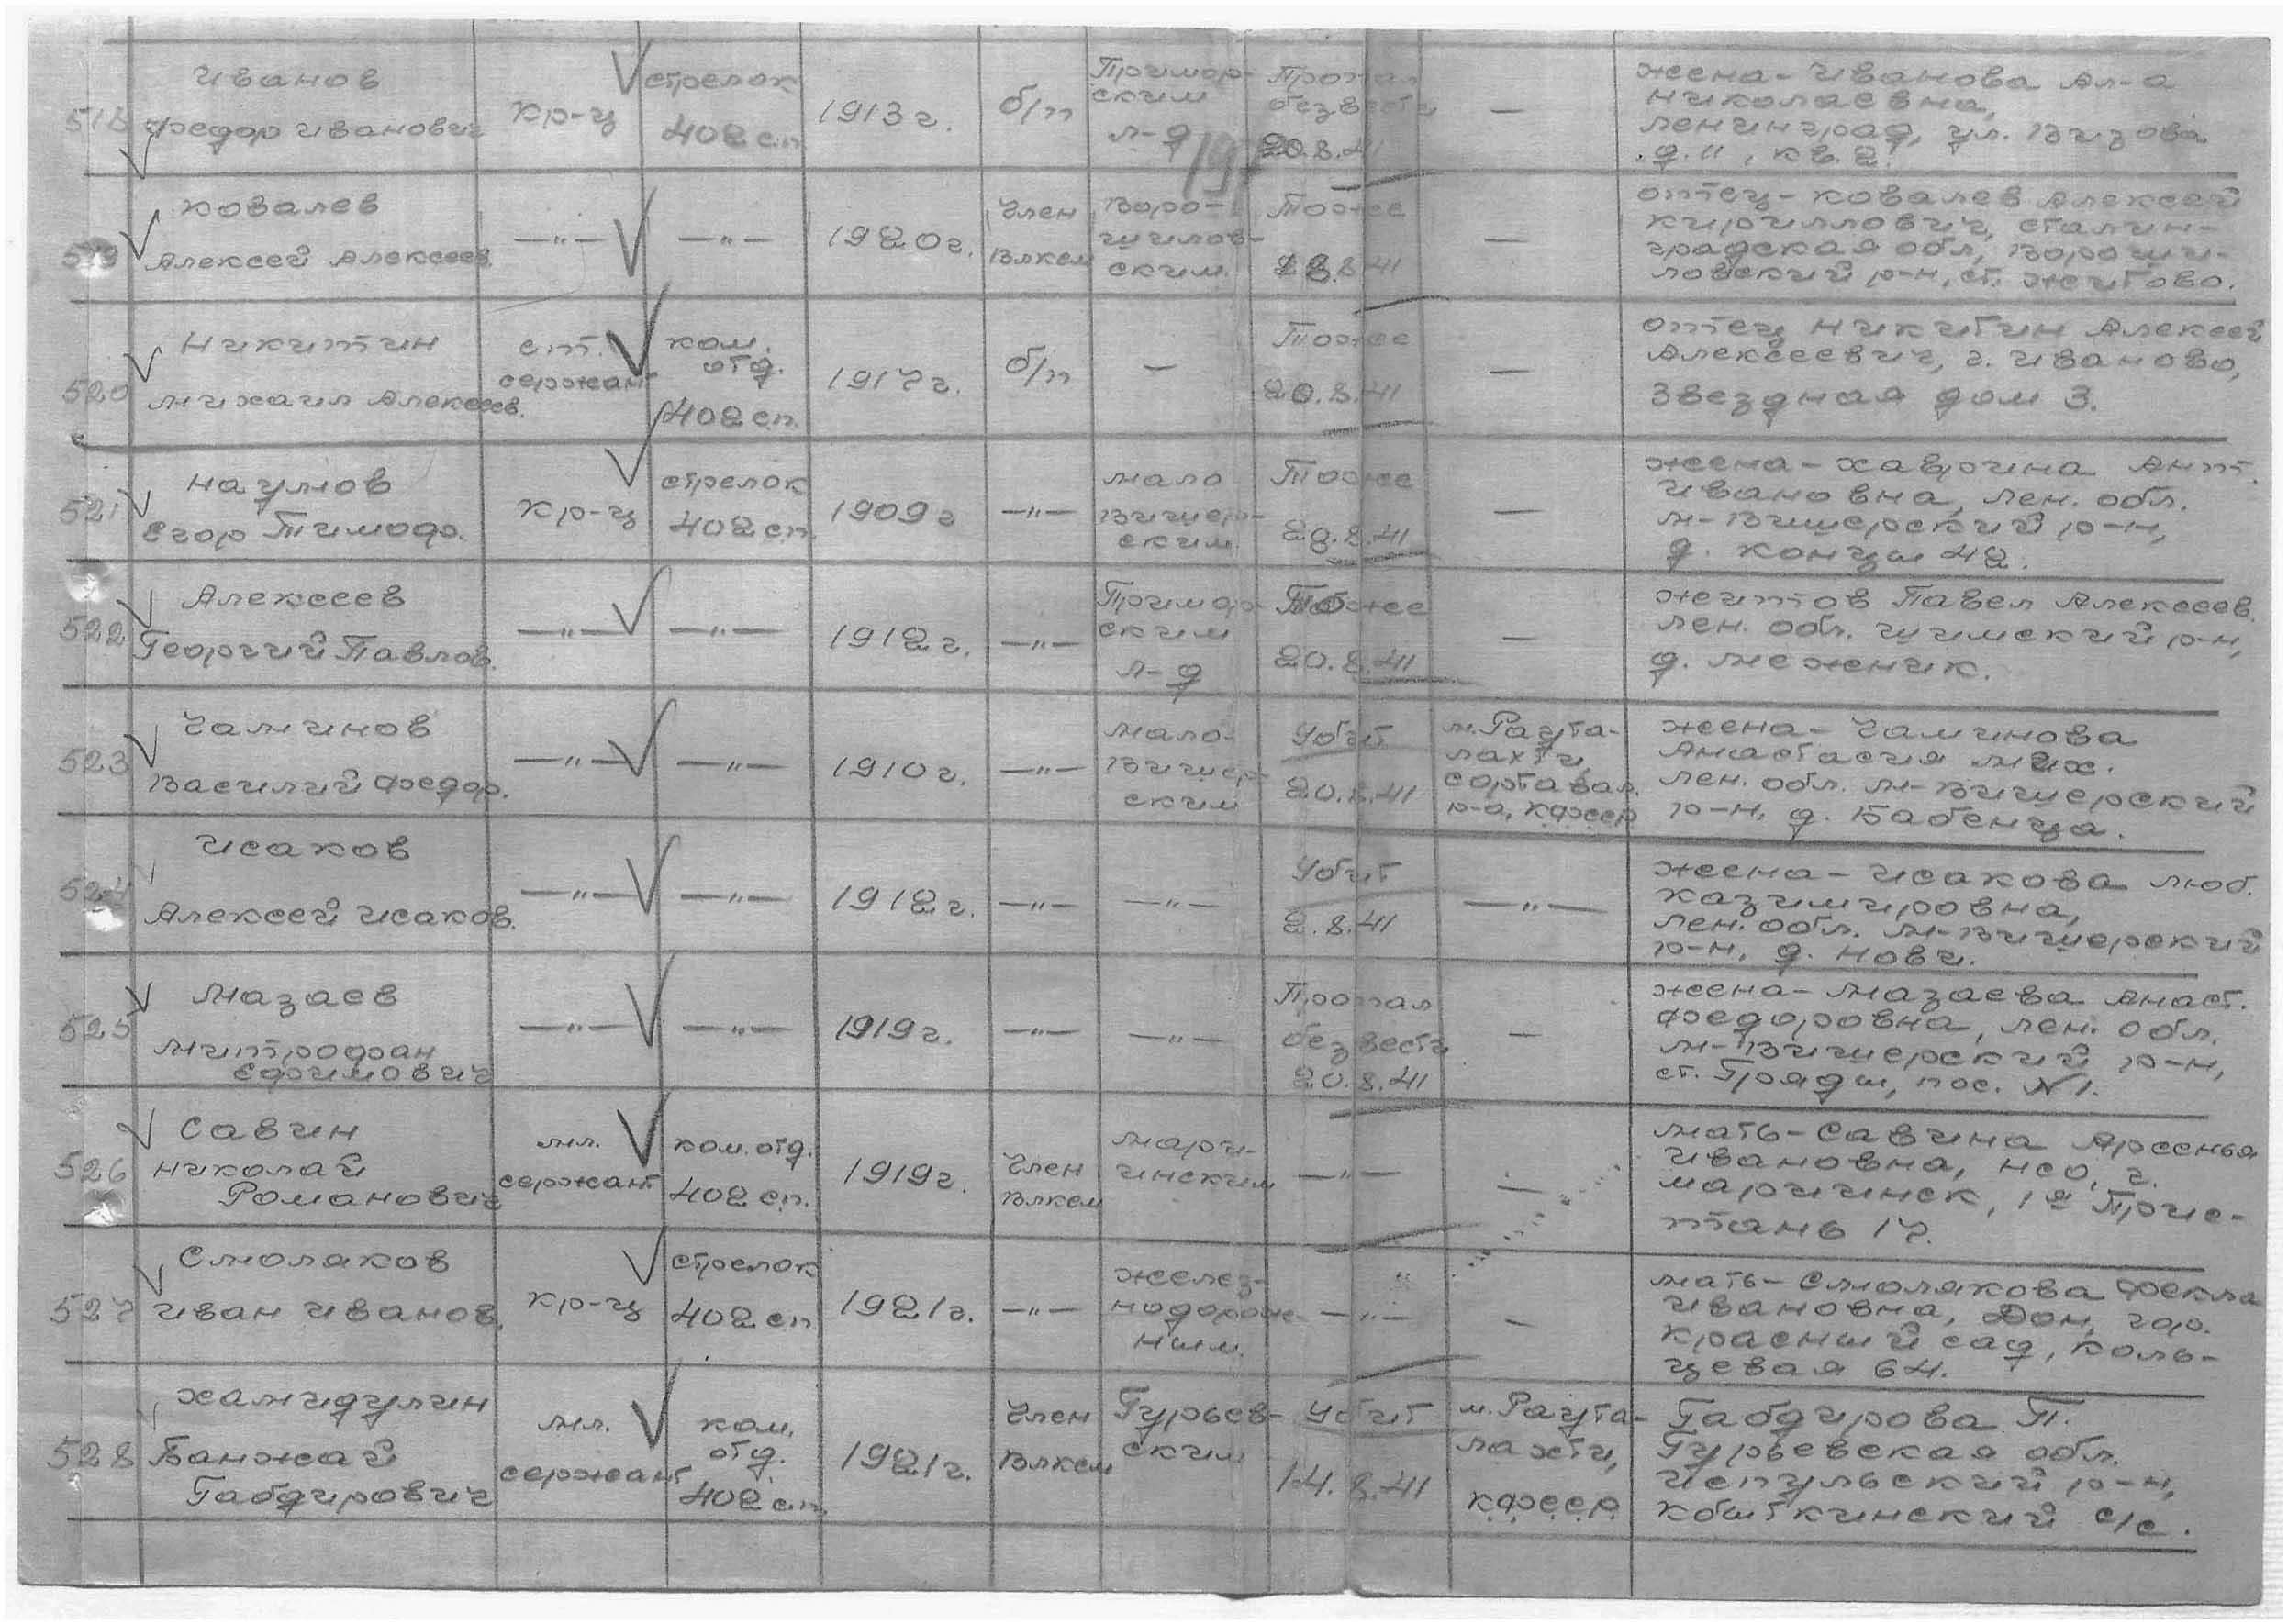 518
Иванов
Федор Иванович
кр-ц
стрелок
402 сп
1913 г.
б/п
Примор-
ским
л-д
Пропал
без вести
20.8.41
—
жена - Иванова Ал-а
Николаевна,
Ленинград, ул.
д. 11, кв. 2.
519
Ковалев
Алексей Алексеев.
—"—
—"—
1920 г.
Член
ВЛКСМ
Воро-
шилов-
ским.
Тоже
8.41
—
отец - Ковалев Алексей
Кириллович, Сталин-
градская обл, Вороши-
ловский р-н, ст. Жутово.
520
Никитин
Михаил Алексеев.
ст.
сержант
ком.
отд.
402 сп.
1917 г.
б/п
—
Тоже
20.8.41
—
отец Никитин Алексей
Алексеевич, г. Иваново,
Звездная дом 3.
521
Наумов
Егор Тимоф.
кр-ц
стрелок
402 сп.
1909 г
—"—
мало
вишер-
ским.
Тоже
20.8.41
—
жена - Хаврчина Ант.
Ивановна, Лен. обл.
М-Вишерский р-н,
д. Концы 42.
522
Алексеев
Георгий Павлов.
—"—
—"—
1912 г.
—"—
Примор-
ским
л-д
Тоже
20.8.41
—
Житов Павел Алексеев.
Лен. обл. Шимский р-н,
д. Меженик.
523
Чаминов
Василий Федор.
—"—
—"—
1910 г.
—"—
мало-
вишер-
ским
Убит
20.8.41
м. Раута-
лахти,
Сортавал.
р-а, КФССР
жена - Чаминова
Анастасия Мих.
Лен. обл. М-Вишерский
р-н, д. Бабенца.
524
Исаков
Алексей Исаков.
—"—
—"—
1912 г.
—"—
—"—
Убит
2.8.41
—"—
жена - Исакова Люб.
Казимировна,
Лен. обл. М-Вишерский
р-н, д. Нови.
525
Мазаев
Митрофан
Ефимович
—"—
—"—
1919 г.
—"—
—"—
Пропал
без вести
20.8.41
—
жена - Мазаева Анаст.
Федоровна, Лен. обл.
М-Вишерский р-н,
ст. Гряды, пос. №1.
526
Савин
Николай
Романович
мл.
сержант
ком. отд.
402 сп.
1919 г.
Член
ВЛКСМ
Мари-
инским
—"—
—
мать - Савина Арсенья
Ивановна, НСО, г.
Мариинск, 1я При-
стань 17.
527
Смоляков
Иван Иванов.
кр-ц
стрелок
402 сп
1921 г.
—"—
желез-
нодорож-
ным.
—"—
—
мать - Смолякова Фекла
Ивановна, Дон, гор.
Красный сад, Коль-
цевая 64.
528
Хамидулин
Банжай
Габдирович
мл.
сержант
ком.
отд.
402 сп.
1921 г.
Член
ВЛКСМ
Гурьев-
ским
Убит
14.8.41
м. Раута-
лахти,
КФССР
Габдирова П.
Гурьевская обл.
Испульский р-н,
Кобыткинский с/с.